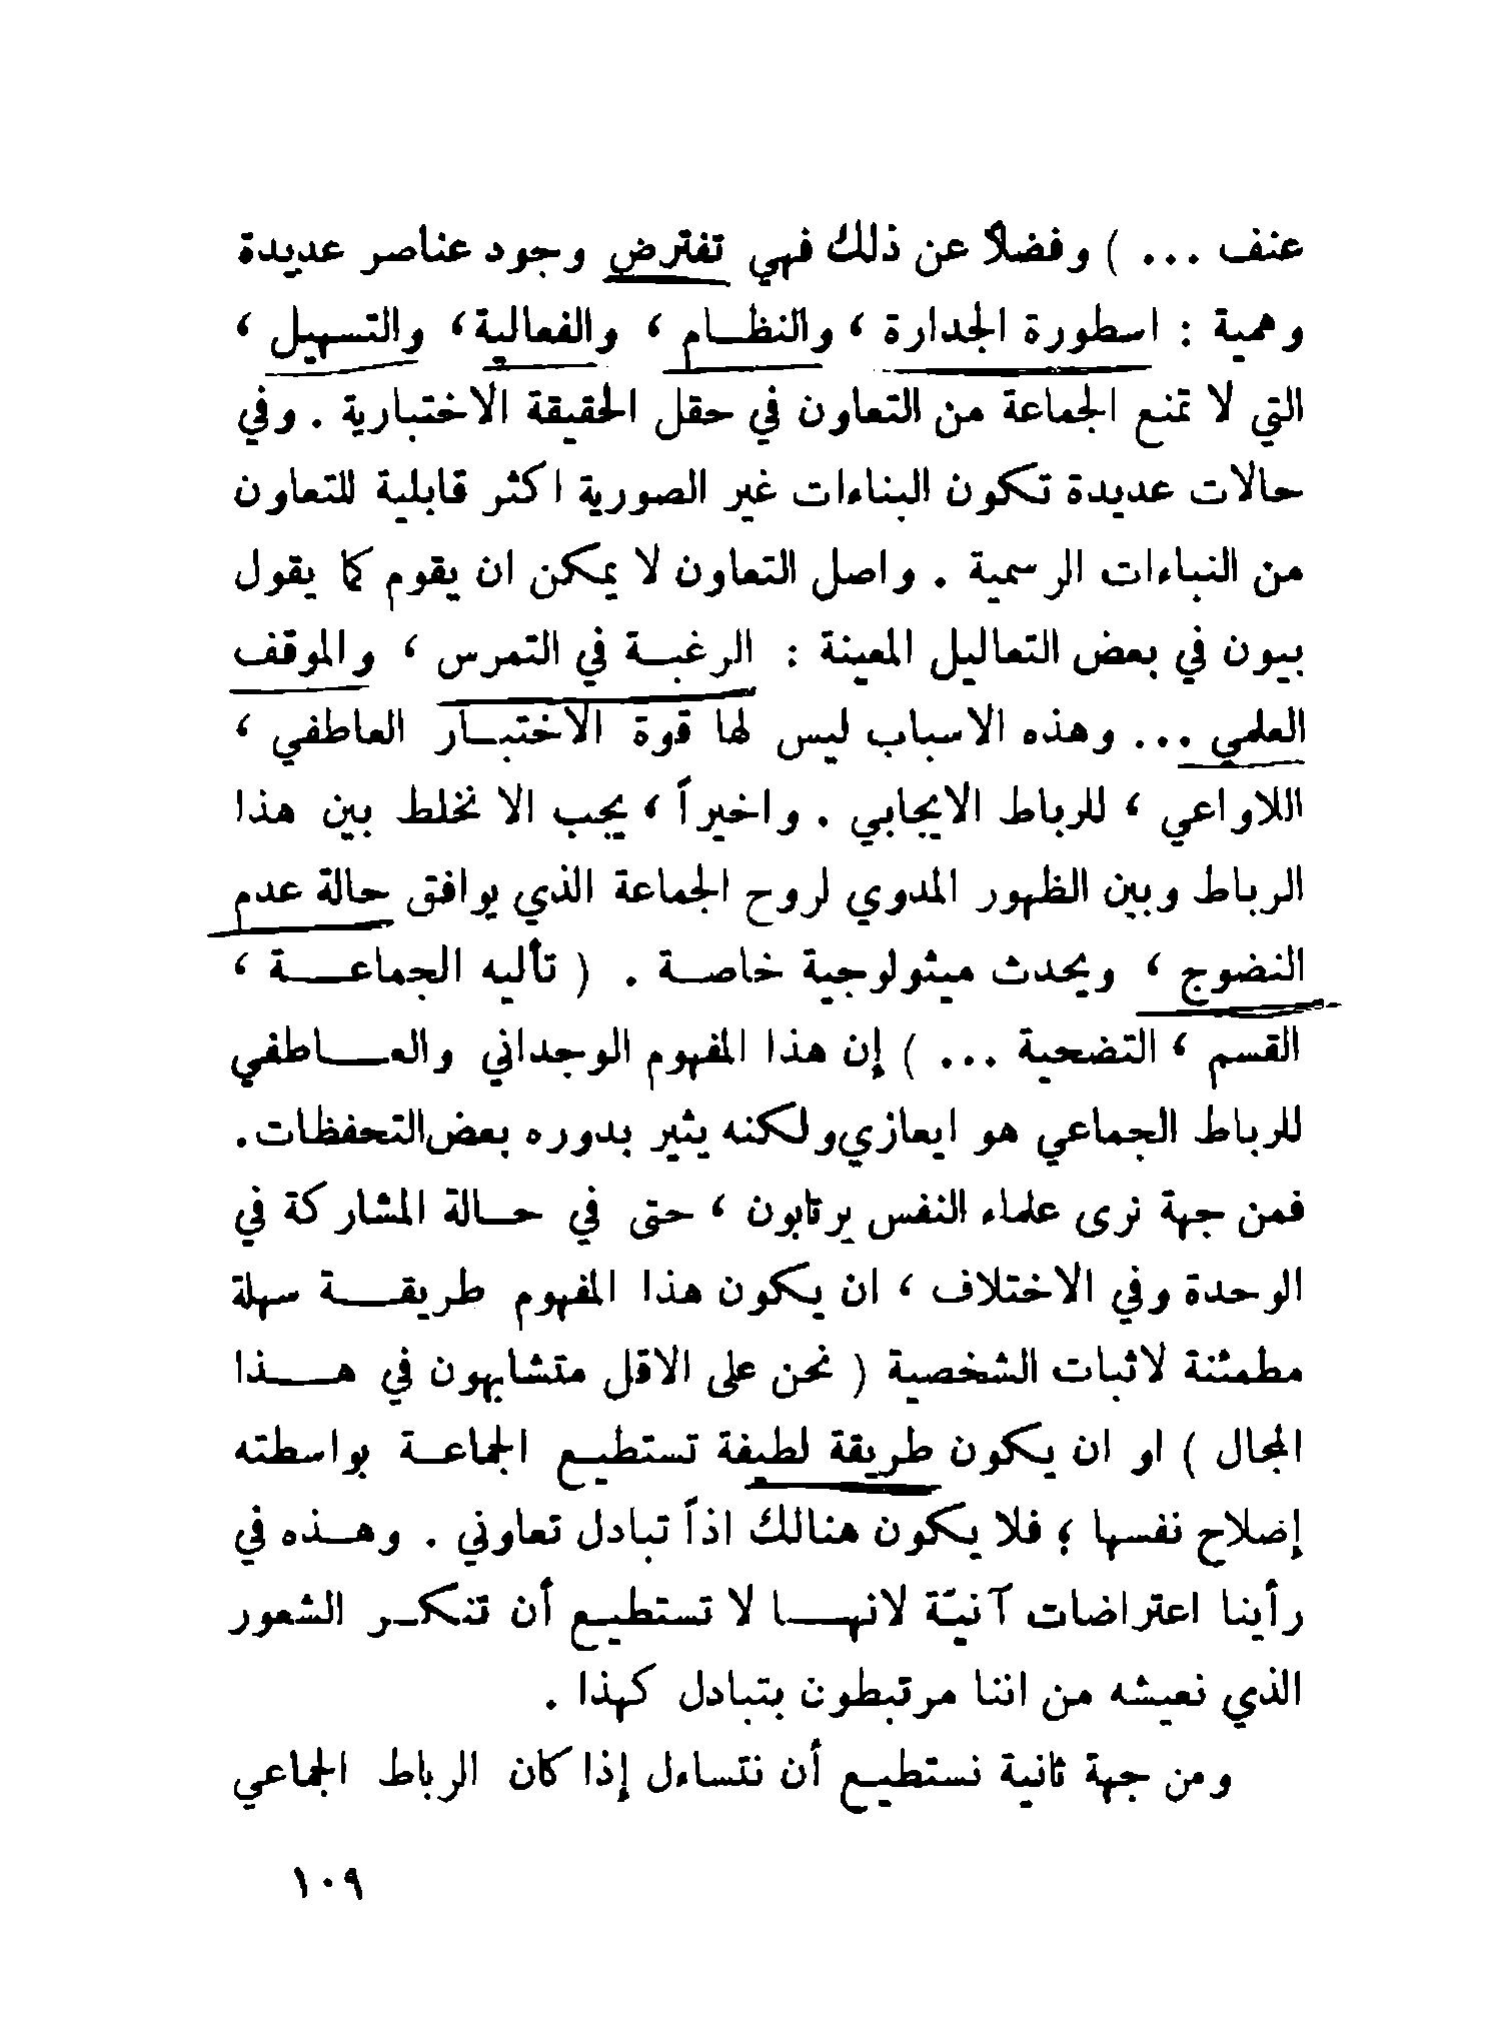 عنف ... ) وفضلاً عن ذلك فهي تفترض وجود عناصر عديدة
وهمية : اسطورة الجدارة ، والنظـام ، والفعالية ، والتسهيل ،
التي لا تمنع الجماعة من التعاون في حقل الحقيقة الاختبارية . وفي
حالات عديدة تكون البناءات غير الصورية اكثر قابلية للتعاون
من النباءات الرسمية . واصل التعاون لا يمكن ان يقوم كما يقول
بيون في بعض التعاليل المعينة : الرغبـة في التمرس ، والموقف
العلمي ... وهذه الاسباب ليس لها قوة الاختبـار العاطفي ،
اللاواعي ، للرباط الايجابي . واخيراً ، يجب الا نخلط بين هذا
الرباط وبين الظهور المدوي لروح الجماعة الذي يوافق حالة عدم
النضوج ، ويحدث ميثولوجية خاصـة . ( تأليه الجماعـــة ،
القسم ، التضحية ... ) إن هذا المفهوم الوجداني والعـــاطفي
للرباط الجماعي هو ايعازي ولكنه يثير بدوره بعض التحفظات .
فمن جهة نرى علماء النفس يرتابون ، حتى في حـالة المشاركة في
الوحدة وفي الاختلاف ، ان يكون هذا المفهوم طريقـــة سهلة
مطمئنة لاثبات الشخصية ( نحن على الاقل متشابهون في هـــذا
المجال ) او ان يكون طريقة لطيفة تستطيـع الجماعـة بواسطته
إضلاح نفسها ؛ فلا يكون هنالك اذاً تبادل تعاوني . وهـذه في
رأينا اعتراضات آنيّة لانهـــا لا تستطيـع أن تنكـر الشعور
الذي نعيشه من اننا مرتبطون بتبادل كهذا .
ومن جهة ثانية نستطيـع أن نتساءل إذا كان الرباط الجماعي
١٠٩